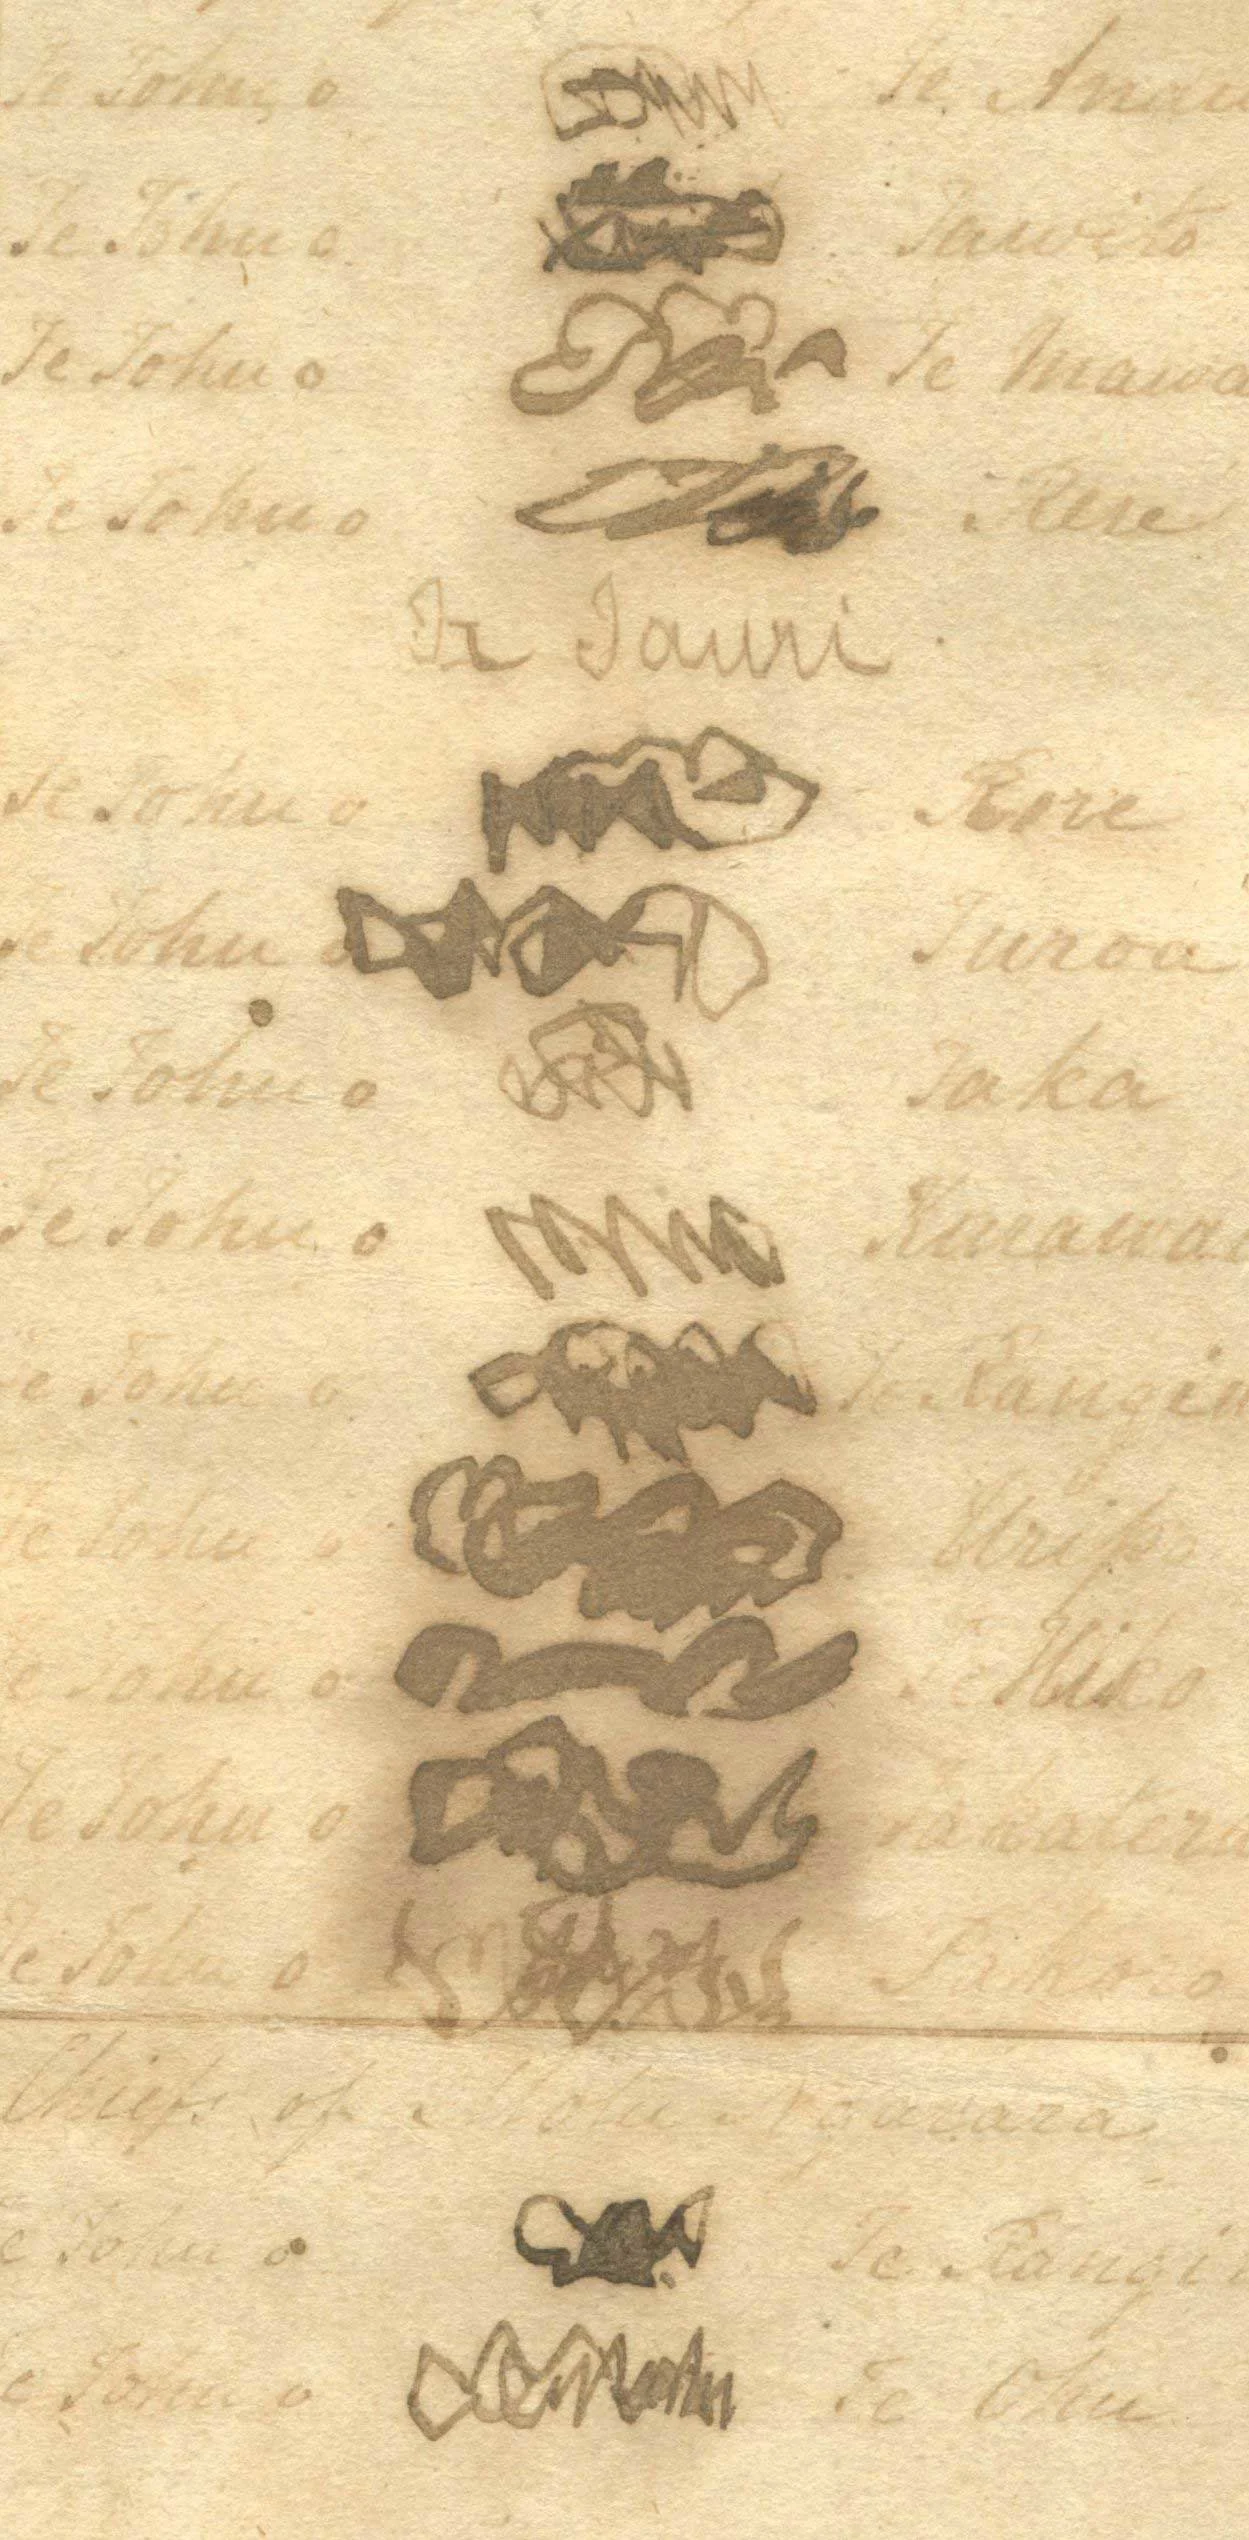 Te Tohu o Te Anau
Te Tohu o Tawito
Te Tohu o Te Mawa
Te Tohu o Rere
Te Tauri
Te Tohu o Rore
Te Tohu o Turoa
Te Tohu o Taka
Te Tohu o Kurawa
Te Tohu o Te Rangi
Te Tohu o Uripo
Te Tohu o Te Hiko
Te Tohu o
Te Tohu o
Chiefs of
Te Tohu o Te Rangi
Te Tohu o Te Ohu